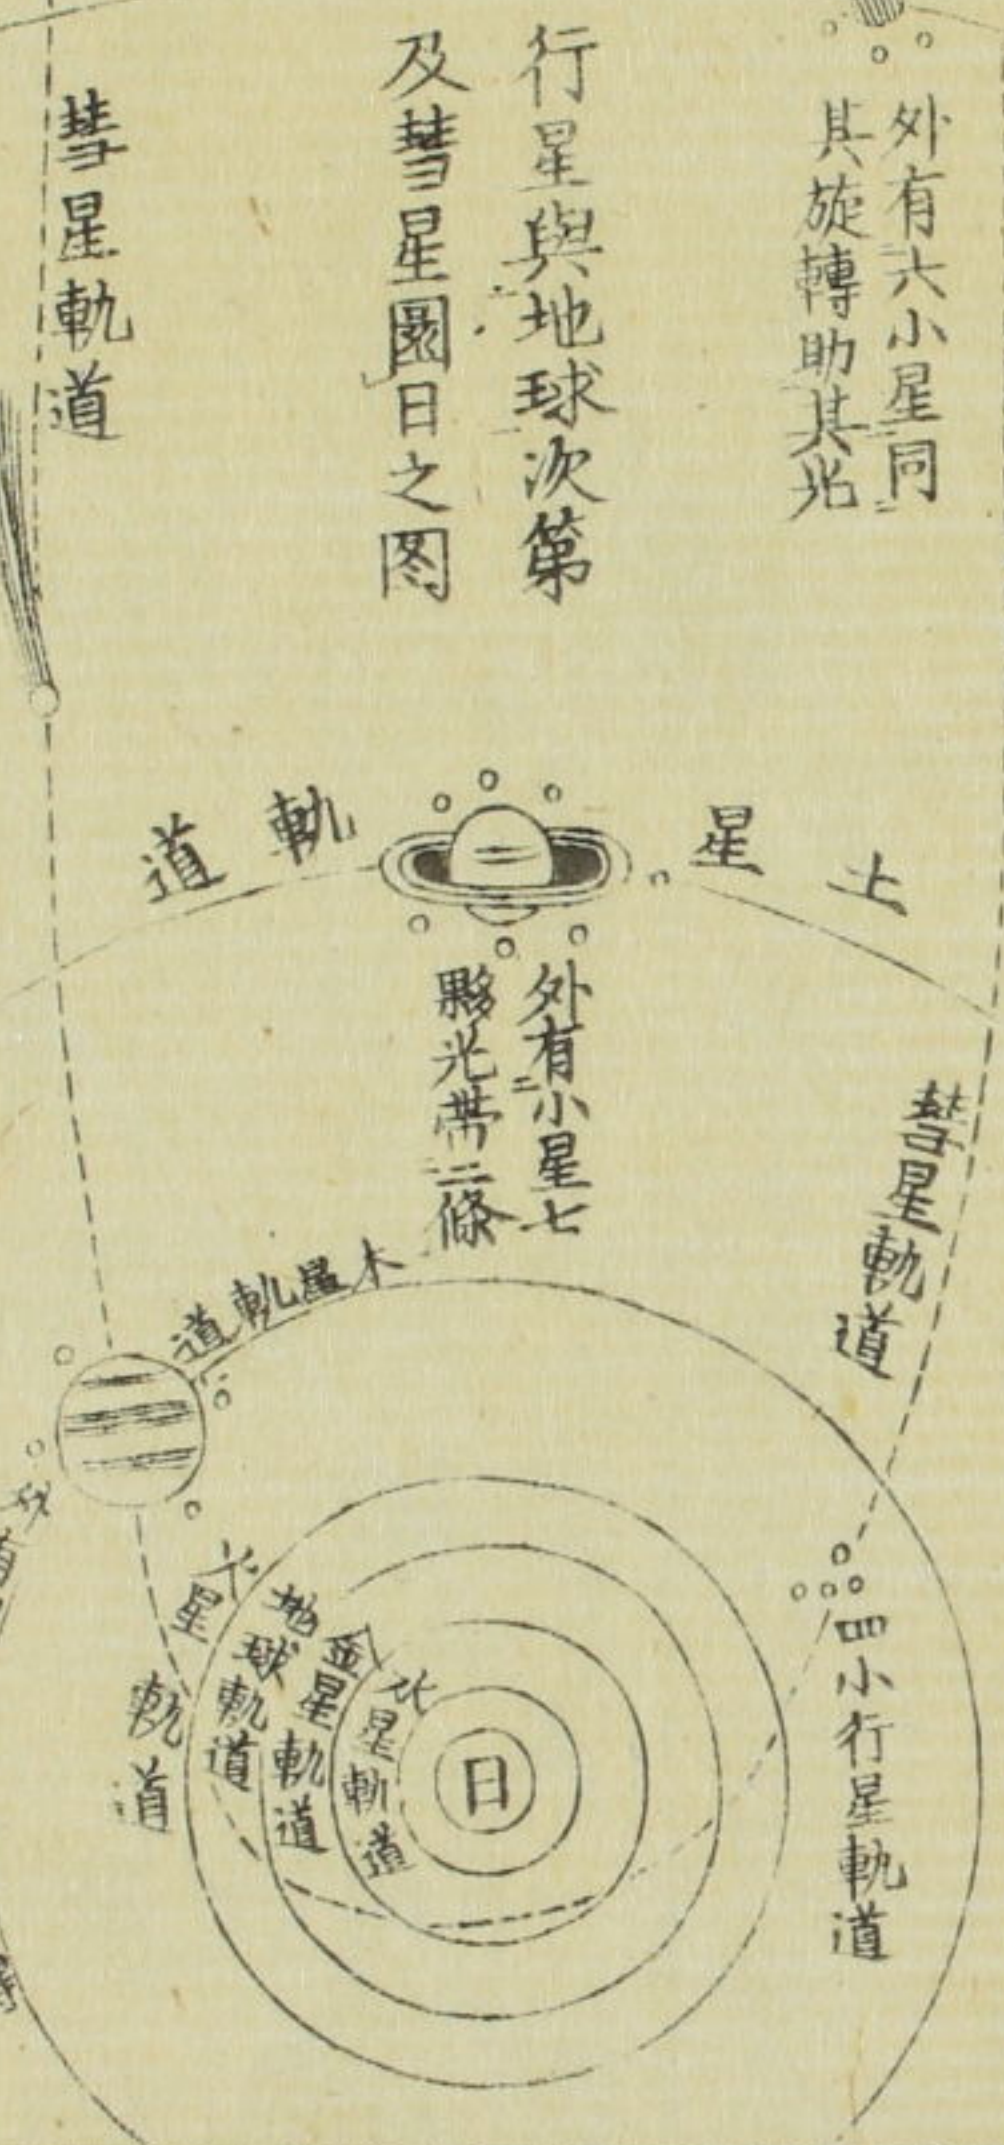 外有六小星同
其旋轉助其光
行星與地球次第
及彗星圜日之图
彗星軌道
土星軌道
外有小星七
夥光帶二條
彗星軌道
木星軌道
火星軌道
地球軌道
金星軌道
水星軌道
日
四小行星軌道